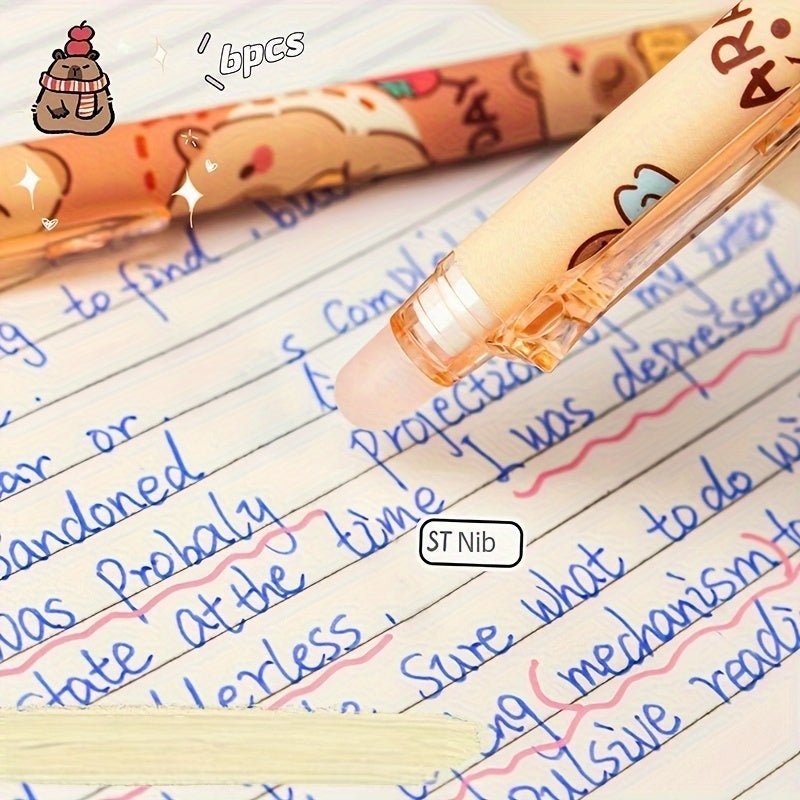 6pcs
DAY
to find, bu
s Compl
my inter
ar or.
Projection
I was depressed
bandoned
was Probaly
time
ST Nib
state at the
Sure what to do wi
llerless.
(mechanism) to
ng
pulsive readi